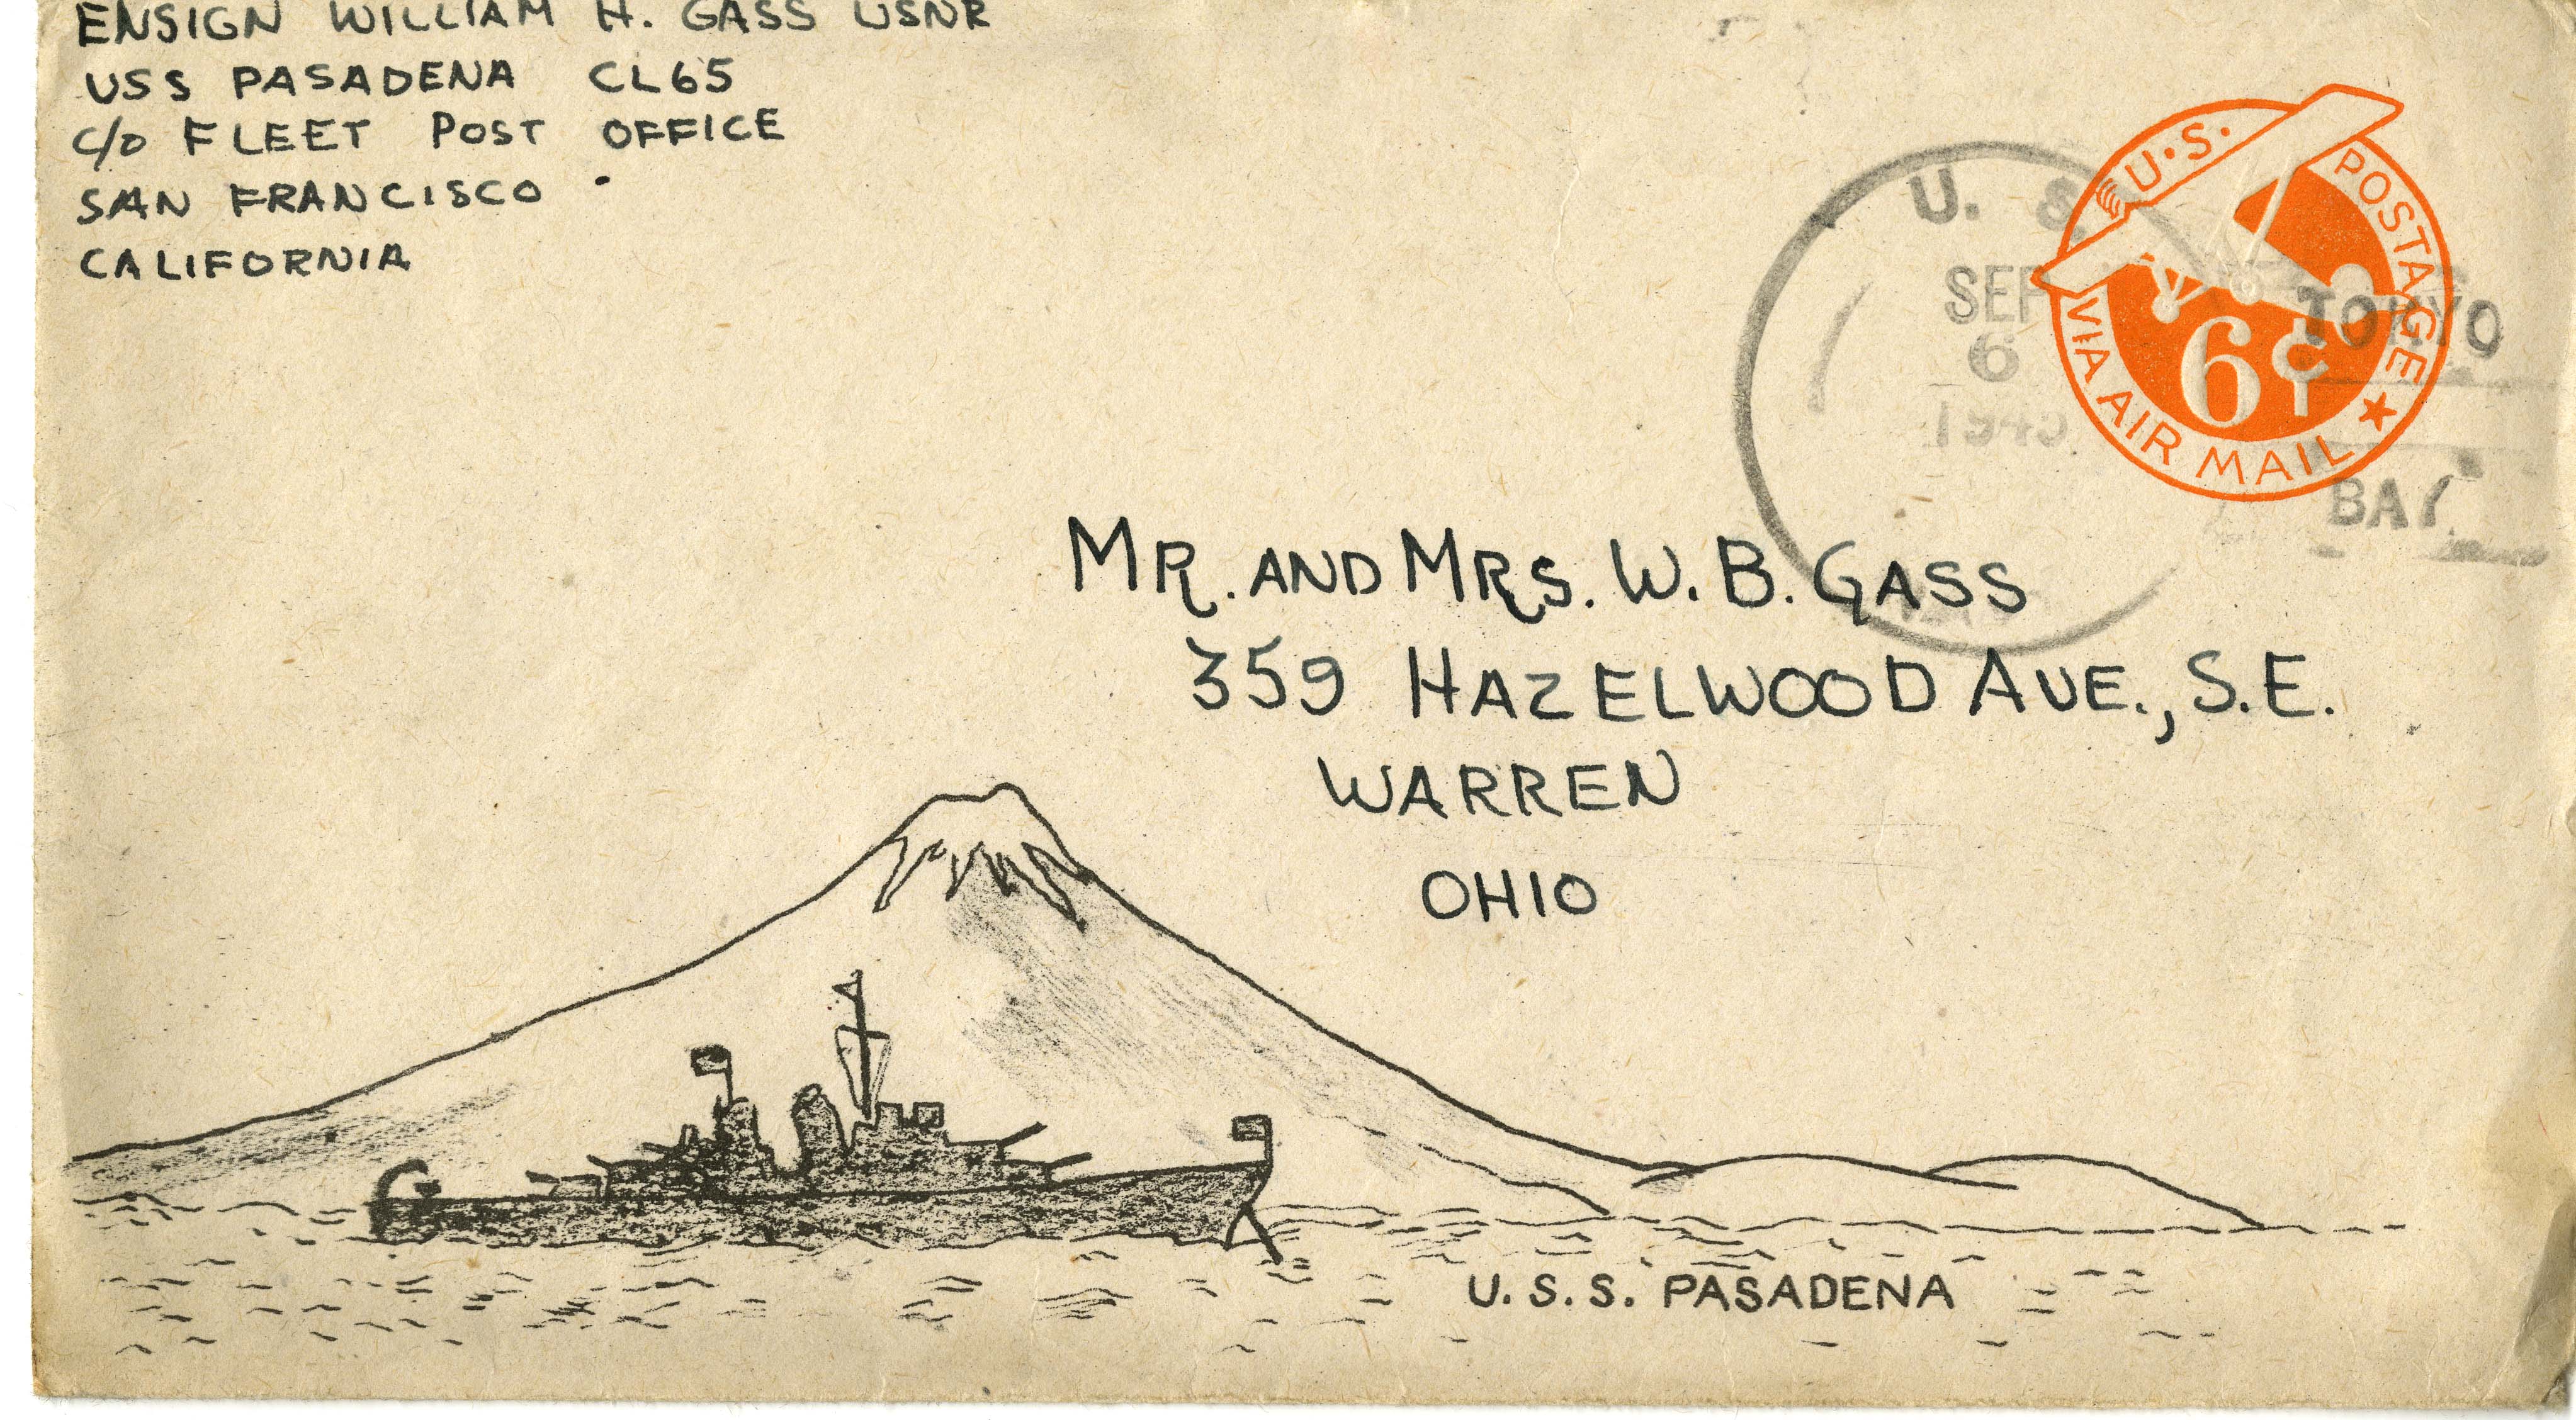 ENSIGN WILLIAM H. GASS USNR
USS PASADENA CL65
c/o FLEET POST OFFICE
SAN FRANCISCO
CALIFORNIA
U. S.
SEP
6
1945
TOKYO
BAY
U.S. POSTAGE
6¢
VIA AIR MAIL
MR. AND MRS. W. B. GASS
359 HAZELWOOD AVE., S.E.
WARREN
OHIO
U.S.S. PASADENA